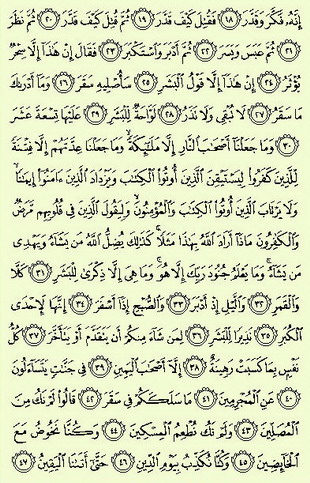 إِنَّهُۥ فَكَّرَ وَقَدَّرَ ﴿١٨﴾ فَقُتِلَ كَيۡفَ قَدَّرَ ﴿١٩﴾ ثُمَّ قُتِلَ كَيۡفَ قَدَّرَ ﴿٢٠﴾ ثُمَّ نَظَرَ
﴿٢١﴾ ثُمَّ عَبَسَ وَبَسَرَ ﴿٢٢﴾ ثُمَّ أَدۡبَرَ وَٱسۡتَكۡبَرَ ﴿٢٣﴾ فَقَالَ إِنۡ هَٰذَآ إِلَّا سِحۡرٞ
يُؤۡثَرُ ﴿٢٤﴾ إِنۡ هَٰذَآ إِلَّا قَوۡلُ ٱلۡبَشَرِ ﴿٢٥﴾ سَأُصۡلِيهِ سَقَرَ ﴿٢٦﴾ وَمَآ أَدۡرَىٰكَ
مَا سَقَرُ ﴿٢٧﴾ لَا تُبۡقِي وَلَا تَذَرُ ﴿٢٨﴾ لَوَّاحَةٞ لِّلۡبَشَرِ ﴿٢٩﴾ عَلَيۡهَا تِسۡعَةَ عَشَرَ
﴿٣٠﴾ وَمَا جَعَلۡنَآ أَصۡحَٰبَ ٱلنَّارِ إِلَّا مَلَٰٓئِكَةٗۖ وَمَا جَعَلۡنَا عِدَّتَهُمۡ إِلَّا فِتۡنَةٗ
لِّلَّذِينَ كَفَرُواْ لِيَسۡتَيۡقِنَ ٱلَّذِينَ أُوتُواْ ٱلۡكِتَٰبَ وَيَزۡدَادَ ٱلَّذِينَ ءَامَنُوٓاْ إِيمَٰنٗا
وَلَا يَرۡتَابَ ٱلَّذِينَ أُوتُواْ ٱلۡكِتَٰبَ وَٱلۡمُؤۡمِنُونَ وَلِيَقُولَ ٱلَّذِينَ فِي قُلُوبِهِم مَّرَضٞ
وَٱلۡكَٰفِرُونَ مَاذَآ أَرَادَ ٱللَّهُ بِهَٰذَا مَثَلٗاۚ كَذَٰلِكَ يُضِلُّ ٱللَّهُ مَن يَشَآءُ وَيَهۡدِي
مَن يَشَآءُۚ وَمَا يَعۡلَمُ جُنُودَ رَبِّكَ إِلَّا هُوَۚ وَمَا هِيَ إِلَّا ذِكۡرَىٰ لِلۡبَشَرِ ﴿٣١﴾ كَلَّا
وَٱلۡقَمَرِ ﴿٣٢﴾ وَٱلَّيۡلِ إِذۡ أَدۡبَرَ ﴿٣٣﴾ وَٱلصُّبۡحِ إِذَآ أَسۡفَرَ ﴿٣٤﴾ إِنَّهَا لَإِحۡدَى
ٱلۡكُبَرِ ﴿٣٥﴾ نَذِيرٗا لِّلۡبَشَرِ ﴿٣٦﴾ لِمَن شَآءَ مِنكُمۡ أَن يَتَقَدَّمَ أَوۡ يَتَأَخَّرَ ﴿٣٧﴾ كُلُّ
نَفۡسِۭ بِمَا كَسَبَتۡ رَهِينَةٌ ﴿٣٨﴾ إِلَّآ أَصۡحَٰبَ ٱلۡيَمِينِ ﴿٣٩﴾ فِي جَنَّٰتٖ يَتَسَآءَلُونَ
﴿٤٠﴾ عَنِ ٱلۡمُجۡرِمِينَ ﴿٤١﴾ مَا سَلَكَكُمۡ فِي سَقَرَ ﴿٤٢﴾ قَالُواْ لَمۡ نَكُ مِنَ
ٱلۡمُصَلِّينَ ﴿٤٣﴾ وَلَمۡ نَكُ نُطۡعِمُ ٱلۡمِسۡكِينَ ﴿٤٤﴾ وَكُنَّا نَخُوضُ مَعَ
ٱلۡخَآئِضِينَ ﴿٤٥﴾ وَكُنَّا نُكَذِّبُ بِيَوۡمِ ٱلدِّينِ ﴿٤٦﴾ حَتَّىٰٓ أَتَىٰنَا ٱلۡيَقِينُ ﴿٤٧﴾